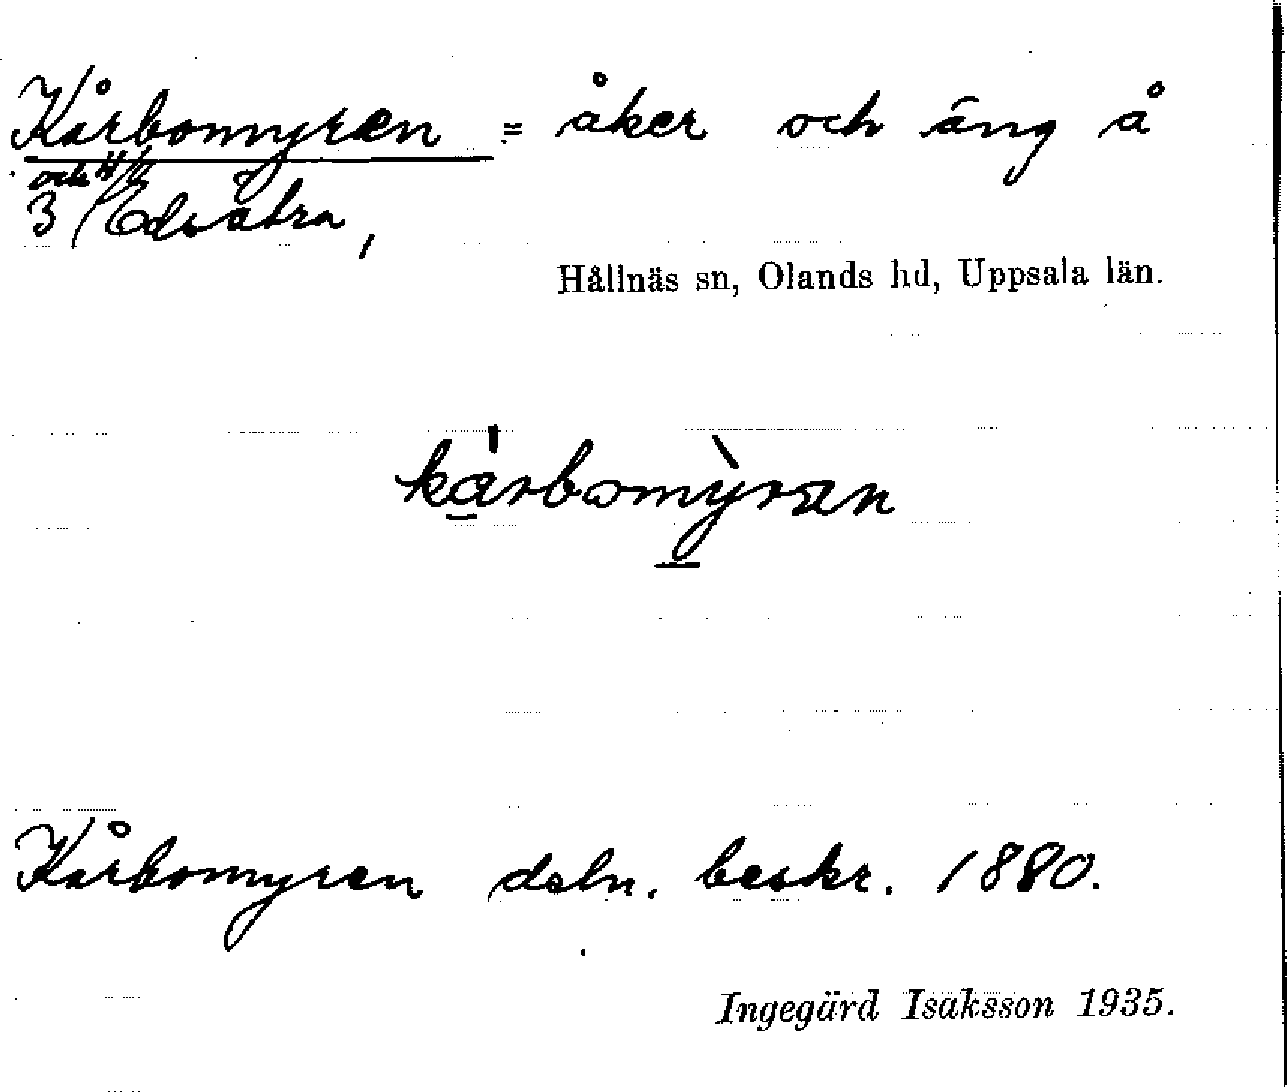 Kårbomyren = åker och äng å
och 4/2
3 Edvätra,
Hållnäs sn, Olands hd, Uppsala län.
kårbomỳran
Kårbomyren deln. beskr. 1880.
Ingegärd Isaksson 1935.